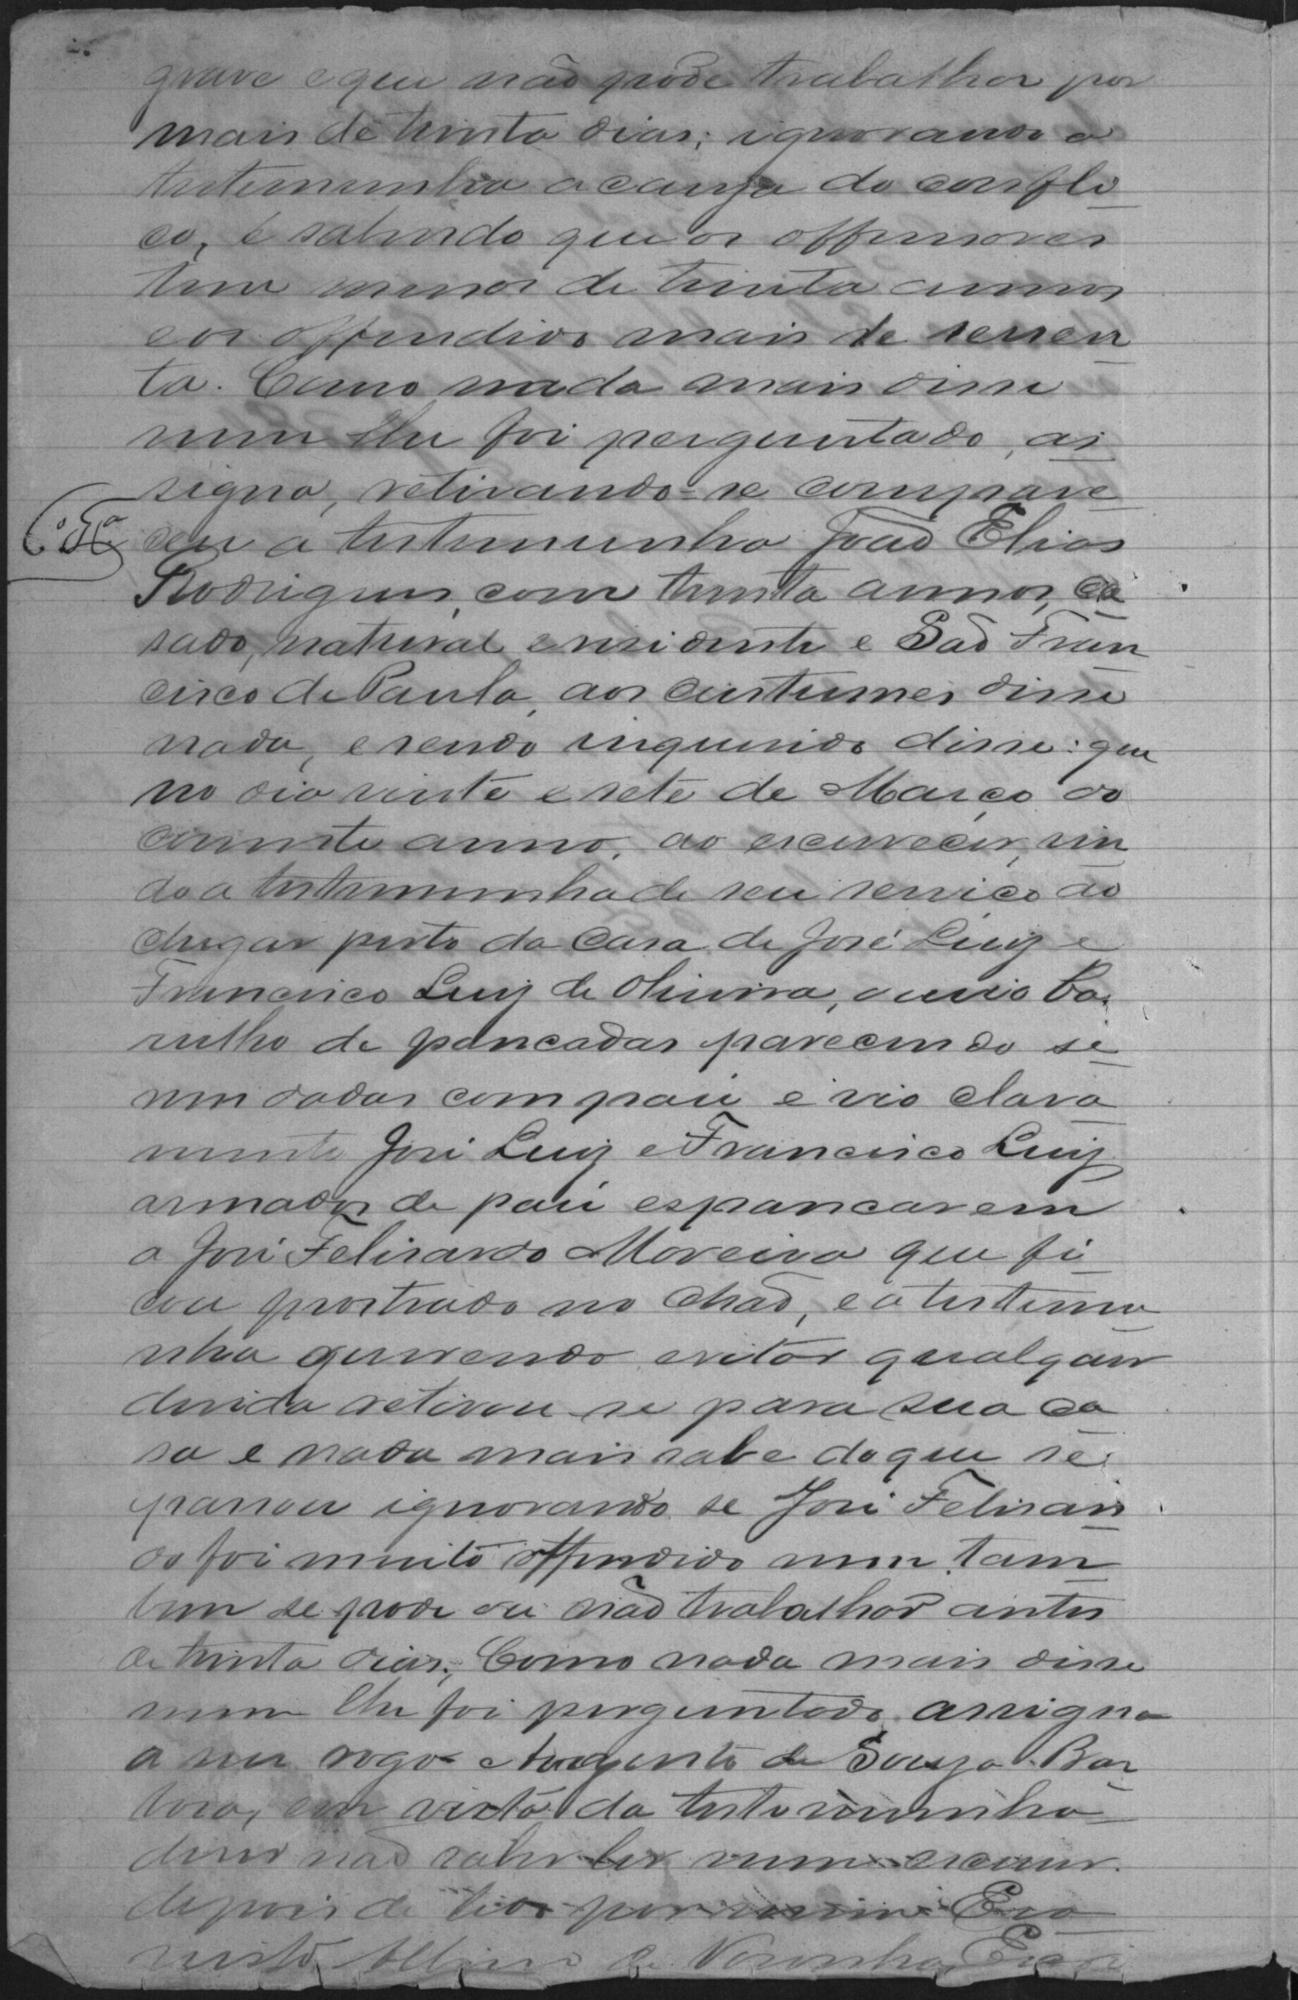 grave e que não pode trabalhar por
mais de trinta dias; ignorando a
testemunha a causa do confli
co, é sabendo que os offensores
tem menos de trinta annos
e os offendidos mais de sessen
ta. Como nada mais disse
nem lhe foi perguntado, as
signa, retirando-se compare
ceu a testemunha João Elias
Rodrigues, com trinta annos, ca
sado, natural e residente e São Fran
cisco de Paula, aos custumes disse
nada, e sendo inquerido disse: que
no dia vinte e sete de Março do
corrente anno, ao escurecer, vin
do a testemunha de seu serviço ao
chegar perto da casa de José Luiz e
Francisco Luiz de Oliveira, ouvio ba
rulho de pancadas parecendo se
rem dadas com páu e vio clara
mente José Luiz e Francisco Luiz
armados de páu espancarem
a José Felisardo Moreira que fi
cou prostrado no chão, e a testemu
nha querendo evitar qualquer
duvida retirou-se para sua ca
sa e nada mais sabe do que se
passou ignorando se José Felisar
do foi muito offendido nem tam
bem se pode ou não trabalhar antes
de trinta dias; Como nada mais disse
nem lhe foi perguntado, assigna
a seu rogo de Souza Bar
bosa, em vista da testemunha
dizer não saber ler nem escrever.
depois de lido por mim Eva
risto de Noronha, Escri